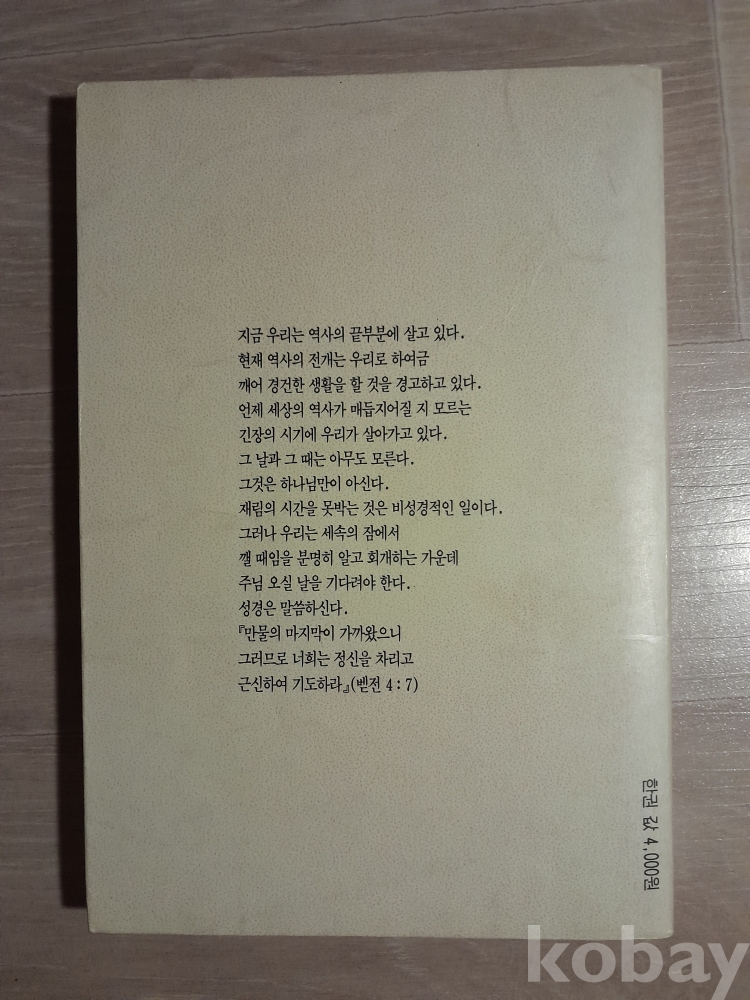 지금 우리는 역사의 끝부분에 살고 있다.
현재 역사의 전개는 우리로 하여금
깨어 경건한 생활을 할 것을 경고하고 있다.
언제 세상의 역사가 매듭지어질 지 모르는
긴장의 시기에 우리가 살아가고 있다.
그 날과 그 때는 아무도 모른다.
그것은 하나님만이 아신다.
재림의 시간을 못박는 것은 비성경적인 일이다.
그러나 우리는 세속의 잠에서
깰 때임을 분명히 알고 회개하는 가운데
주님 오실 날을 기다려야 한다.
성경은 말씀하신다.
『만물의 마지막이 가까왔으니
그러므로 너희는 정신을 차리고
근신하여 기도하라』(벧전 4 : 7)
한권 값 4,000원
kobay